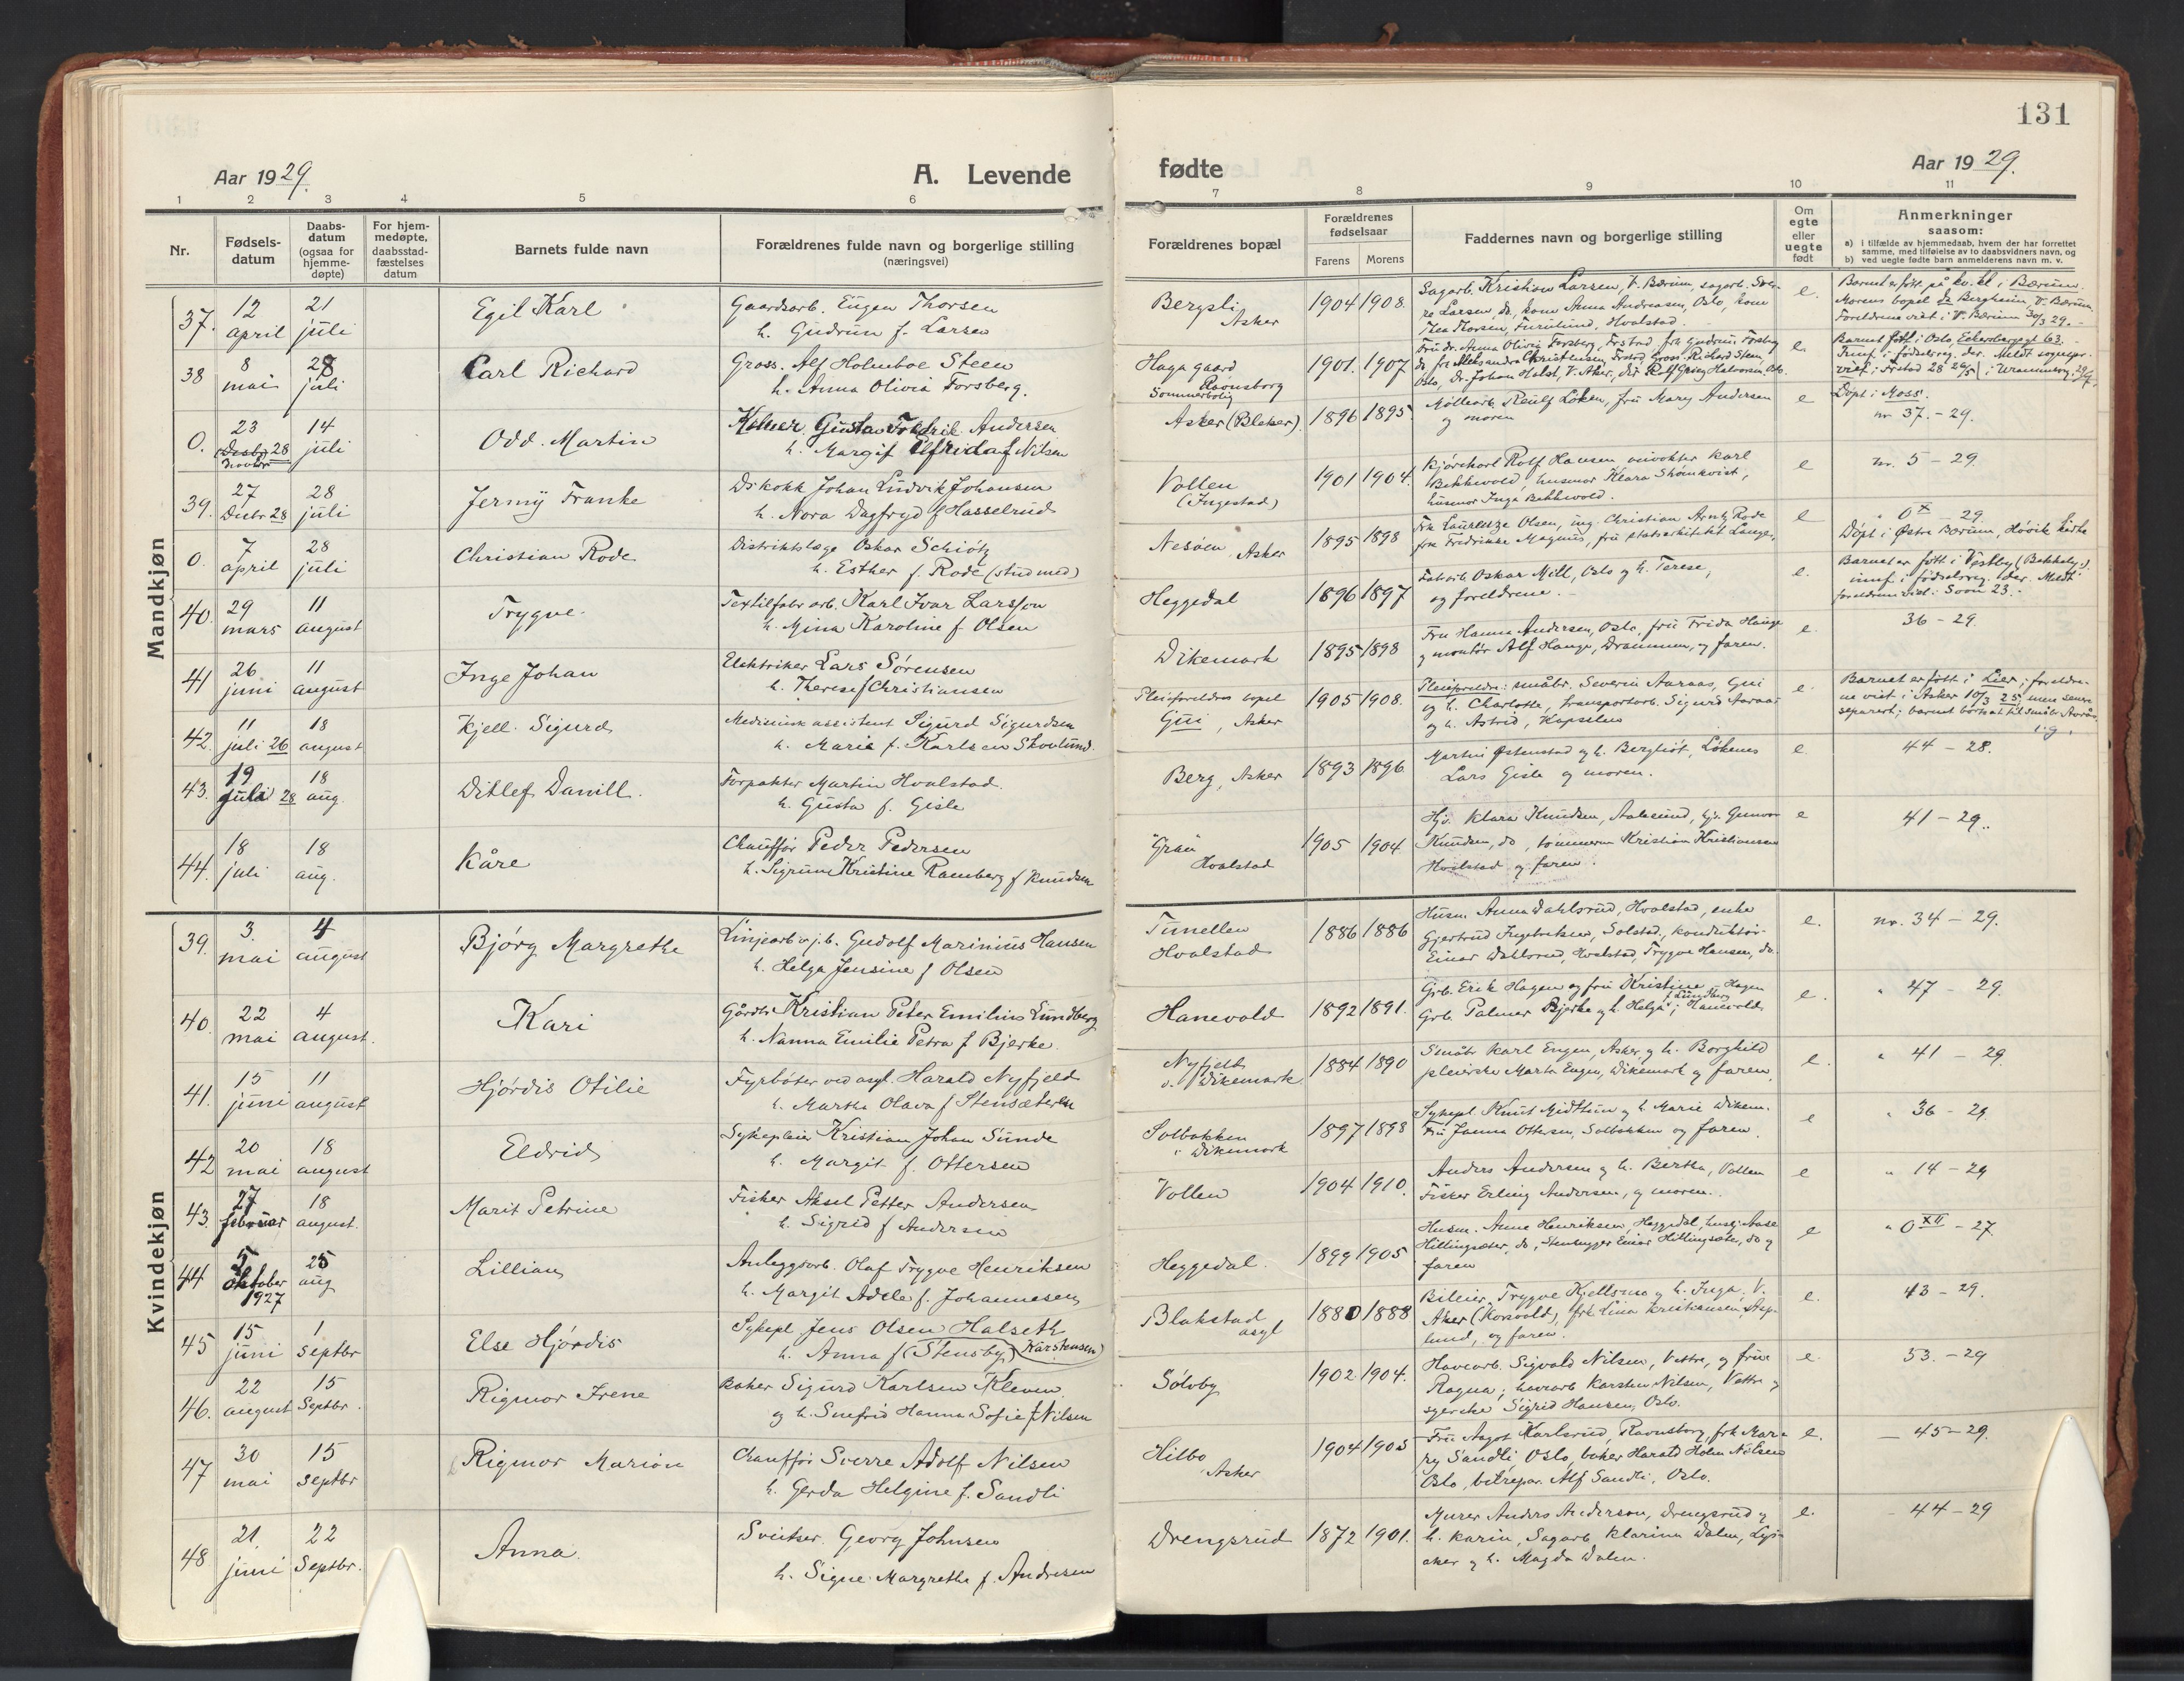 131
Aar 1929.
A. Levende
fødte
Aar 1929.
1 2 3 4 5 6
7 8 9 10 11
Nr.
Fødsels-datum
Daabs-datum (ogsaa for hjemme-døpte)
For hjem-medøpte, daabsstad-fæstelses datum
Barnets fulde navn
Forældrenes fulde navn og borgerlige stilling (næringsvei)
Forældrenes bopæl
Forældrenes fødselsaar
Farens
Morens
Faddernes navn og borgerlige stilling
Om egte eller uegte født
Anmerkninger saasom:
a) i tilfælde av hjemmedaab, hvem der har forrettet samme, med tilføielse av to daabsvidners navn, og
b) ved uegte fødte barn anmelderens navn m. v.
Mandkjøn
37. 12 april 21 juli Egil Karl
Gaardsarb. Eugen Thorsen
h. Gudrun f. Larsen
Bergsli Asker 1904 1908.
Sagarb. Kristian Larsen, V. Bærum, sagarb.
re Larsen, do, kone Anna Andreasen, Oslo, kone
Thea Thorsen, Furulund, Hvalstad.
e.
Barnet er født på kv. kl i Bærum.
Morens bopel Bergheim, V. Bærum.
Foreldrene viet i V. Bærum 30/3 29.
38 8 mai 28 juli Carl Richard
Gross. Alf Holmboe Steen
h. Anna Olivia Forsberg.
Haga gaard Ravnsborg Sommerbolig 1901. 1907
Fru dr. Anna Olivia Forsberg, Frstad, frk Gudrun Forsberg
do, fr Aleksandra Christensen, Frstad, Gross. Richard Steen,
Oslo, Dr. Johan Holst, V. Aker, dir Rolf Grieg Halvorsen, Oslo
e.
Barnet født i Oslo, Eckersbergsgt 63.
Innf i fødselsreg. der. Meldt sognepr.
viet i Frstad 28
0. 23 Novbr 28 14 juli Odd. Martin
Kelner Gustav Fredrik Andersen
h. Margit Elfrida f Nilsen
Asker (Bleker). 1896 1895
Møllearb. Reulf Løken, fru Mary Andersen
og moren
e
Døpt i Moss.
nr 37. - 29.
39. 27 Desbr 28 28 juli Jermy Franke
Johan Ludvik Johansen
h. Nora Dagfryd f Hasselrud
Vollen (Ingestad) 1901 1904.
Rolf Hansen Karl
Bekkevold, husmor Klara Strømkvist,
husmor Inga Bekkevold.
e
nr. 5 - 29.
0. 7 april 28 juli Christian Rode
Distriktslæge Oskar Schiøtz
h. Esther f. Rode (stud med)
Nesøen, Asker 1895 1898
Olsen, ing. Christian Arntz Rode
frk Fredrikke Magnus, fru statsarkitekt Lange,
e
" 0 X - 29
Døpt i Østre Bærum, Høvik kirke
40. 29 mars 11 august Trygve.
Textilfabr arb. Karl Ivar Larsson
h. Mina Karoline f. Olsen
Heggedal 1896 1897
Fabarb. Oskar Mill, Oslo og h. Terese,
og foreldrene.
e.
Barnet er født i Vestby (Bakkely:).
innf i fødselsreg. der. Meldt
foreldrene viet i Soon 23.
41 26 juni 11 august Inge Johan
Elektriker Lars Sørensen
h. Therese f Christiansen
Dikemark 1895 1898
Fru Hanna Andersen, Oslo, fru Frida Hauge
og montør Alf Hauge, Drammen, og faren.
e.
36 - 29.
42. 11 juli 26 18 august Kjell. Sigurd
Medicinsk assistent Sigurd Sigurdsen
h. Marie f. Karlsen Skovlund.
Pleieforeldres bopel Gui, Asker 1905 1908.
Pleieforeldre: småbr. Severin Aaraas, Gui
og h. Charlotte, transportarb. Sigurd Aaraas
og h. Astrid, Kapselen
e.
Barnet er født i Lier; foreldre-
ne viet i Asker 10/3 25, men senere
separert; barnet bortsat til småbr. Aarås
43. 19 juli 28 18 aug. Ditlef Danill.
Forpakter Martin Hvalstad.
h. Gusta f. Gisle
Berg, Asker 1893 1896
Martin Østenstad og h. Bergliot, Løkenes
Lars Gisle og moren.
e
44 - 28.
44. 18 juli 18 aug. Kåre
Chauffør Peder Pedersen
h. Sigrun Kristine Ramberg f Knudsen
"Grån" Hvalstad 1905 1904.
Hjv. Klara Knudsen, Aalesund, hjv. Gunvor
Knudsen, do, tømmerm Kristian Kristiansen
Hvalstad og faren.
e
41 - 29.
Kvindekjøn
39. 3. mai 4 august Bjørg Margrethe
Linjearb v. j.b. Gudolf Marinius Hansen
h. Helga Jensine f Olsen
Tunellen Hvalstad 1886 1886
Husm. Anna Dahlsrud, Hvalstad, enke
Gjertrud Ingebretsen, Solstad, konduktør
Einar Dahlsrud, Hvalstad, Trygve Hansen, do.
e.
nr. 34 - 29.
40. 22 mai 4 august. Kari
Gårdbr Kristian Peter Emilius Lundberg
h. Nanna Emilie Petra f Bjerke.
Hanevold 1892 1891.
Grb. Erik Hagen og fru Kristine Hagen f Lundberg
Grb. Palmer Bjerke og h. Helga; Hanevold
e.
" 47 - 29.
41. 15 juni 11 august Hjørdis Otilie
Fyrbøter ved asyl. Harald Nyfjeld
h. Martha Olava f Stensæteren
Nyfjeld v. Dikemark 1884 1890
Småbr Karl Engen, Asker og h. Borghild
pleierske Marta Engen, Dikemark og faren.
e.
" 41 - 29
42 20 mai 18 august Eldrid
Sykepleier Kristian Johan Sunde
h. Margit f. Ottersen
Solbakken v. Dikemark 1897 1898
Sykepl Knut Midttun og h Marie Dikem.
Fru Janna Ottersen, Solbakken og faren.
e
" 36 - 29
43. 27 februar 18 august. Marit Petrine
Fisker Aksel Petter Andersen
h. Sigrid f Andersen
Vollen 1904 1910.
Anders Andersen og h. Bertha, Vollen
Fisker Erling Andersen, og moren.
e
" 14 - 29
44 5 oktober 1927 25 aug Lillian
Anleggsarb. Olaf Trygve Henriksen
h. Margit Adele f. Johannesen
Heggedal. 1899 1905
Husm. Anne Henriksen, Heggedal, husj. Aase
Hillingsæter, do, Stenhugger Einar Hillingsæter, do og
faren
e
" 0 XII - 27.
45 15 juni 1 septbr Else Hjørdis
Sykepl Jens Olsen Halseth
h. Anna f (Stensby) Karstensen)
Blakstad asyl 1880 1888
Bileier Trygve Kjellsmo og h. Inga, V.
Aker (Korsvold), frk Lina Kristiansen, Asp-
lund, og faren.
e.
43 - 29.
46. 22 august 15 Septbr. Rigmor Irene
Baker Sigurd Karlsen Kleven.
og h. Snefrid Hanna Sofie f Nilsen
Sølvby 1902 1904.
Havearb. Sigvald Nilsen, Vettre, og frue
Ragna; havearb Karsten Nilsen, Vettre og
syerske Sigrid Hansen, Oslo.
e.
53. - 29
47 30 mai 15 septbr Rigmor Marion
Chauffør Sverre Adolf Nilsen
h. Gerda Helgine f. Sandli
Hilbo Asker 1904 1905
Fru Aagot Karlsrud, Ravnsborg, frk Mar-
ry Sandli, Oslo, baker Harald Holm Nilsen
Oslo, bilrepar. Alf Sandli, Oslo.
e.
45 - 29.
48 21. juni 22 Septbr. Anna.
Sveitser Georg Johnsen
h. Signe Margrethe f. Andresen
Drengsrud 1872 1901.
Murer Anders Andersson, Drengsrud og
h. Karin, Sagarb. Klarinn Dalen, Lys-
aker og h. Magda Dalen.
e.
44 - 29